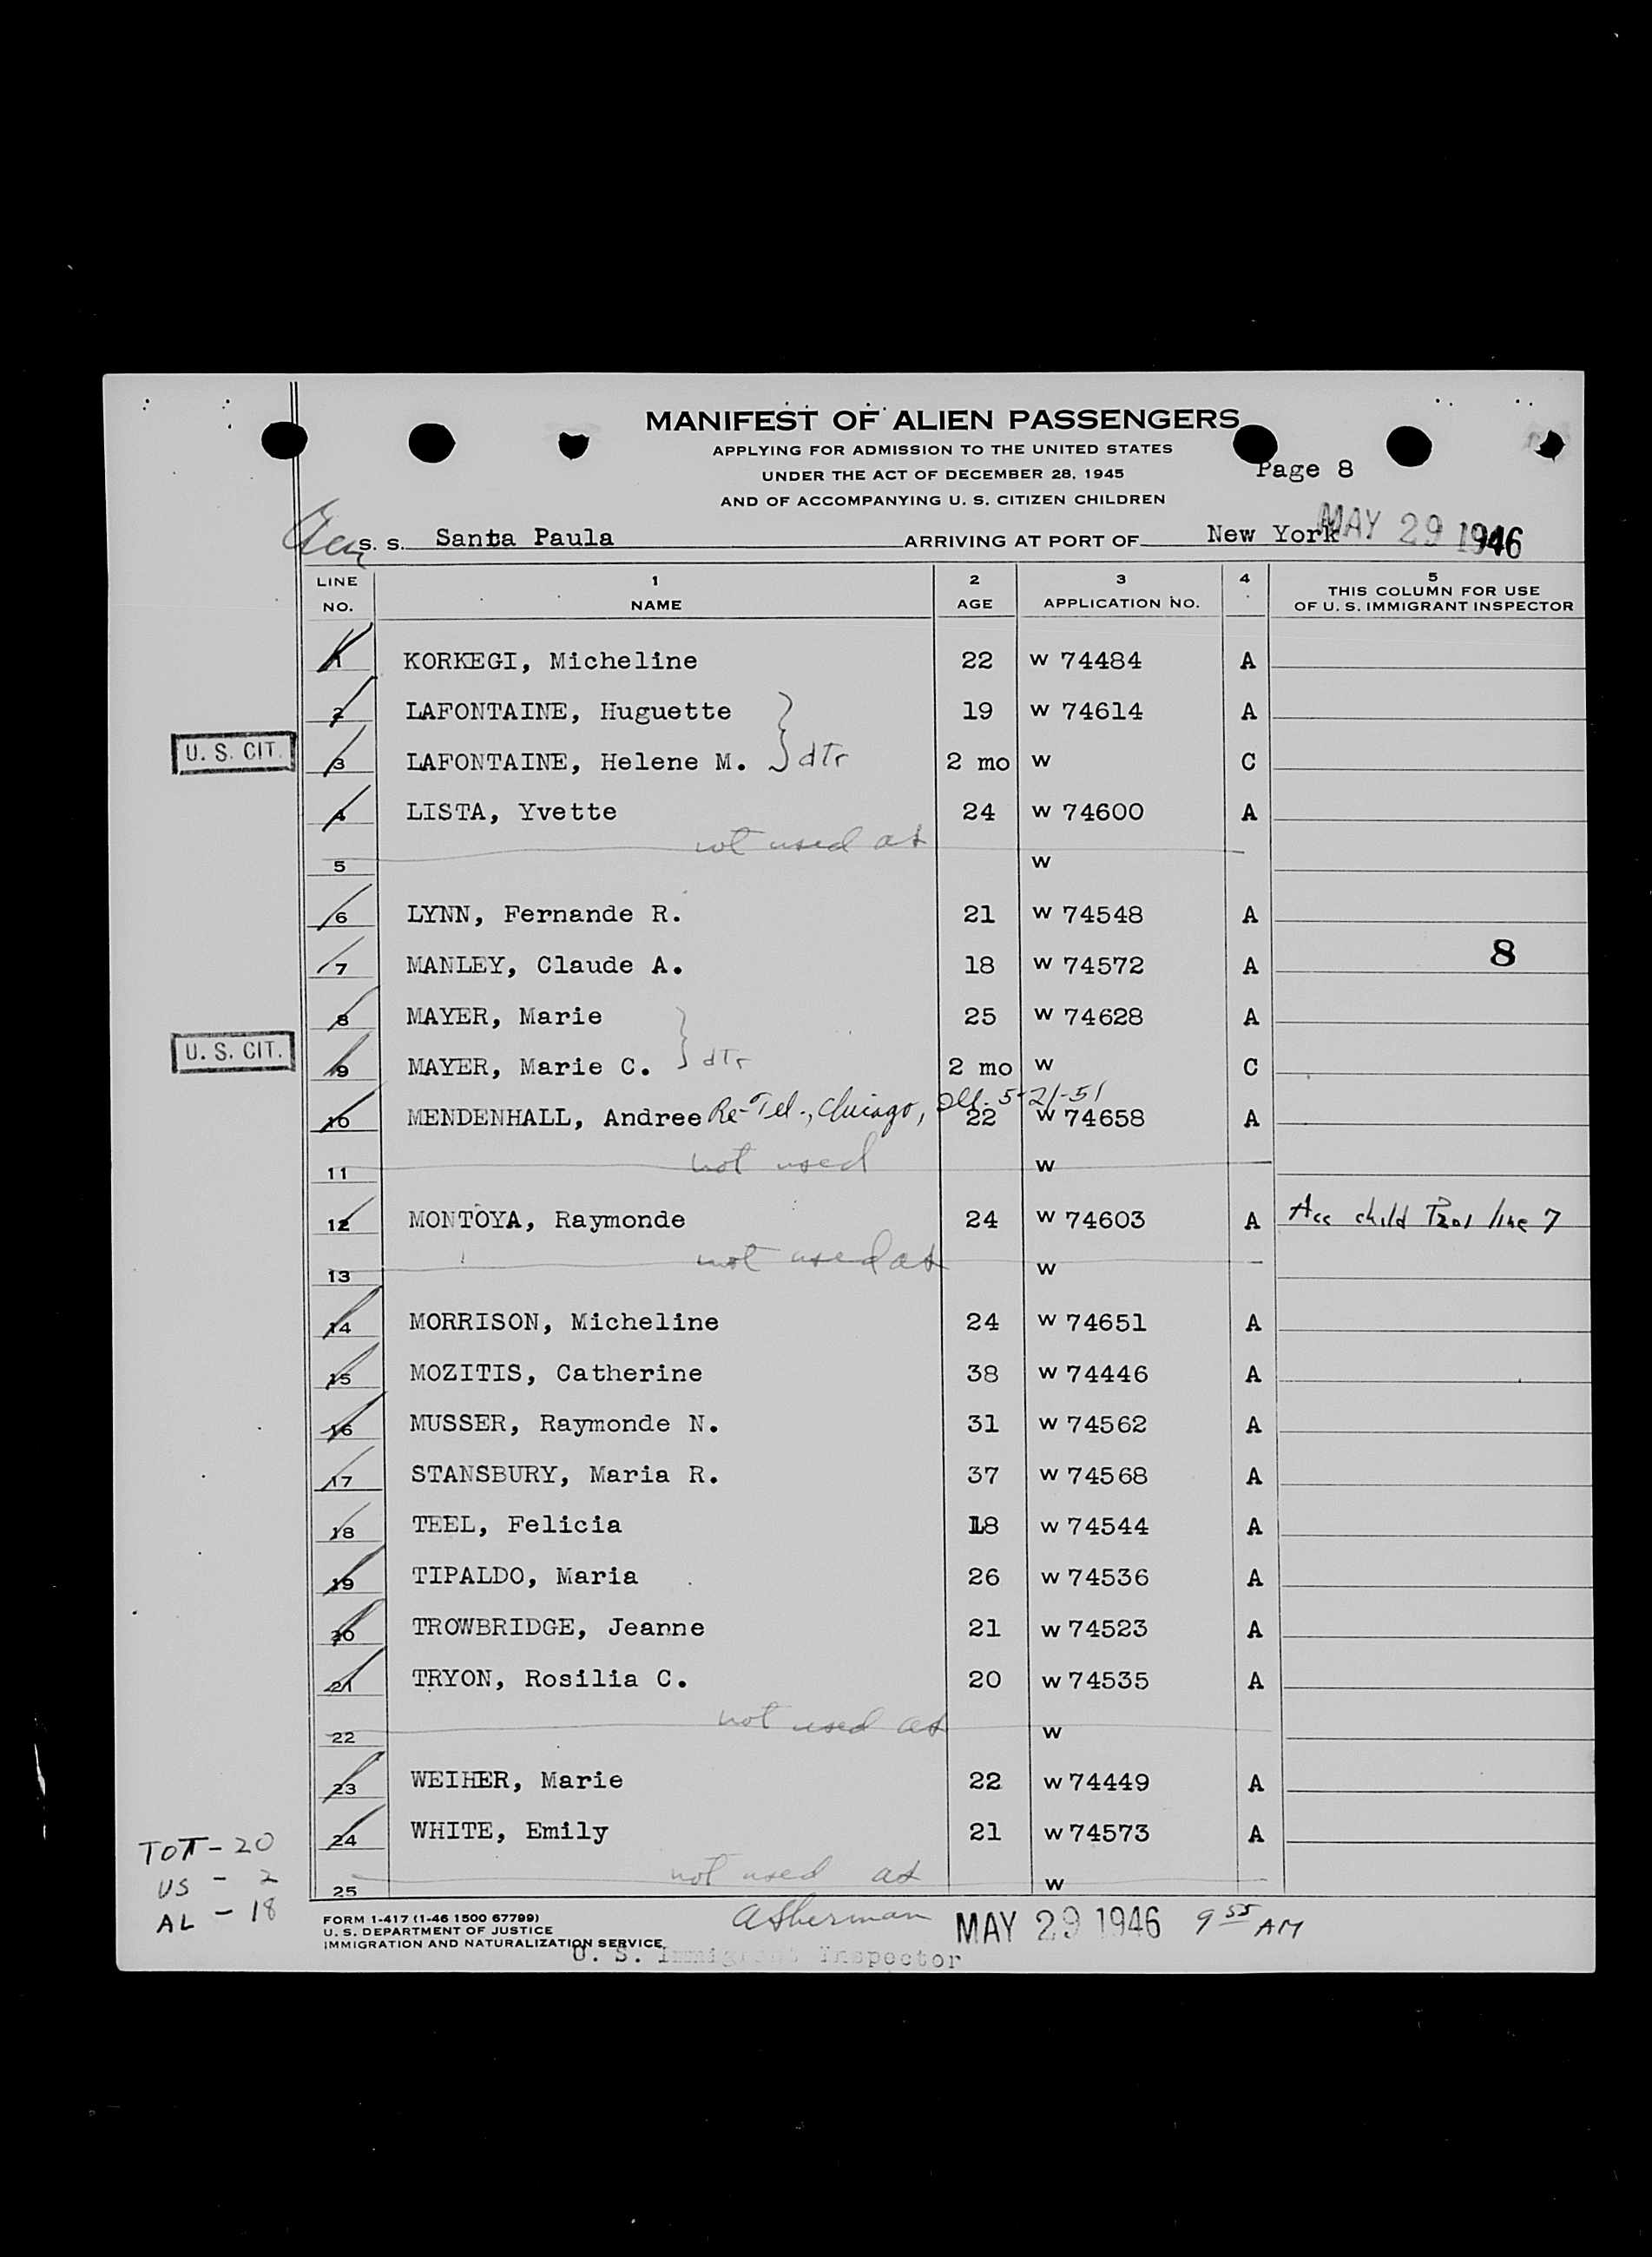 MANIFEST OF ALIEN PASSENGERS
APPLYING FOR ADMISSION TO THE UNITED STATES
UNDER THE ACT OF DECEMBER 28, 1945
Page 8
AND OF ACCOMPANYING U. S. CITIZEN CHILDREN
S. S. Santa Paula ARRIVING AT PORT OF New York MAY 29 1946
LINE NO. 1 NAME 2 AGE 3 APPLICATION NO. 4 5 THIS COLUMN FOR USE OF U. S. IMMIGRANT INSPECTOR
1 KORKEGI, Micheline 22 W 74484 A
2 LAFONTAINE, Huguette 19 W 74614 A
U. S. CIT. 3 LAFONTAINE, Helene M. } dtr 2 mo W C
4 LISTA, Yvette 24 W 74600 A
5 not used as W
6 LYNN, Fernande R. 21 W 74548 A
7 MANLEY, Claude A. 18 W 74572 A 8
8 MAYER, Marie 25 W 74628 A
U. S. CIT. 9 MAYER, Marie C. } dtr 2 mo W C
10 MENDENHALL, Andree Re-Tel., Chicago, Ill. 5-21-51 22 W 74658 A
11 not used W
12 MONTOYA, Raymonde 24 W 74603 A Acc child line 7
13 not used as W
14 MORRISON, Micheline 24 W 74651 A
15 MOZITIS, Catherine 38 W 74446 A
16 MUSSER, Raymonde N. 31 W 74562 A
17 STANSBURY, Maria R. 37 W 74568 A
18 TEEL, Felicia 18 W 74544 A
19 TIPALDO, Maria 26 W 74536 A
20 TROWBRIDGE, Jeanne 21 W 74523 A
21 TRYON, Rosilia C. 20 W 74535 A
22 not used as W
23 WEIHER, Marie 22 W 74449 A
24 WHITE, Emily 21 W 74573 A
25 not used as W
TOT - 20
US - 2
AL - 18
FORM I-417 (1-46 1500 67799)
U. S. DEPARTMENT OF JUSTICE
IMMIGRATION AND NATURALIZATION SERVICE
ASherman MAY 29 1946 9 55 AM
U. S. Immigrant Inspector